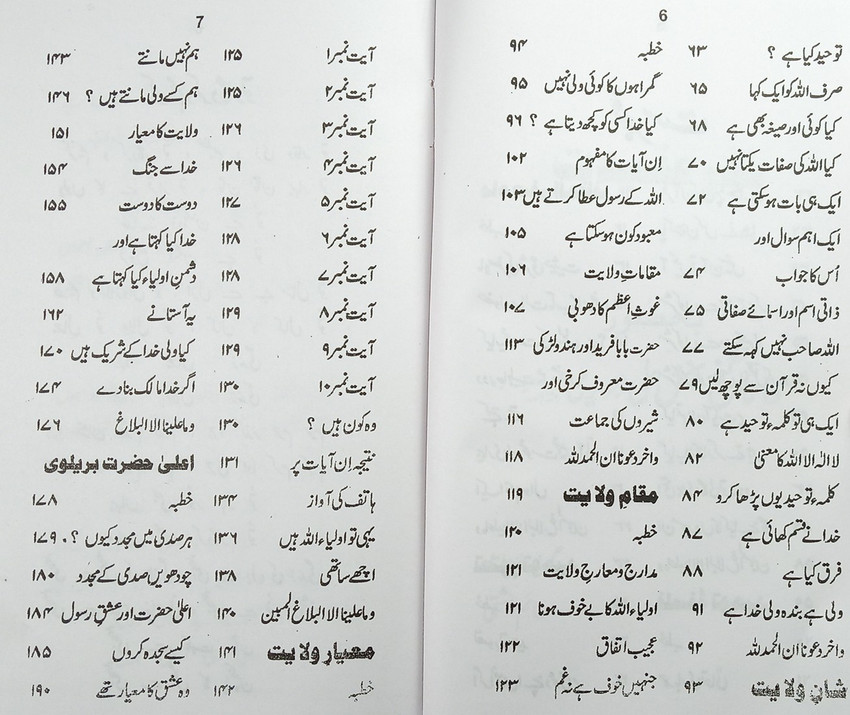 6
توحید کیا ہے ؟ ۶۳
صرف اللہ کو ایک کہا ۶۵
کیا کوئی اور صیغہ بھی ہے ۶۸
کیا اللہ کی صفات یکتا نہیں ۷۰
ایک ہی بات ہو سکتی ہے ۷۲
ایک اہم سوال اور
اُس کا جواب ۷۴
ذاتی اسم اور اسمائے صفاتی ۷۵
اللہ صاحب نہیں کہہ سکتے ۷۷
کیوں نہ قرآن سے پوچھ لیں ۷۹
ایک ہی تو کلمہء توحید ہے ۸۰
لا الہ الا اللہ کا معنیٰ ۸۲
کلمہء توحید یوں پڑھا کرو ۸۴
خدا نے قسم کھائی ہے ۸۷
فرق کیا ہے ۸۸
ولی ہے بندہ ولی خدا ہے ۹۱
واٰخر دعونا ان الحمد للہ ۹۲
شانِ ولایت ۹۳
خطبہ ۹۴
گمراہوں کا کوئی ولی نہیں ۹۵
کیا خدا کسی کو کچھ دیتا ہے ؟ ۹۶
اِن آیات کا مفہوم ۱۰۲
اللہ کے رسول عطا کرتے ہیں ۱۰۳
معبود کون ہو سکتا ہے ۱۰۵
مقاماتِ ولایت ۱۰۶
غوثِ اعظم کا دھوبی ۱۰۷
حضرت بابا فرید اور ہندو لڑکی ۱۱۳
حضرت معروف کرخی اور
شیروں کی جماعت ۱۱۶
واٰخر دعونا ان الحمد للہ ۱۱۸
مقامِ ولایت ۱۱۹
خطبہ ۱۲۰
مدارج و معارجِ ولایت ۱۲۱
اولیاء اللہ کا بے خوف ہونا ۱۲۱
عجیب اتفاق ۱۲۲
جنہیں خوف ہے نہ غم ۱۲۳
7
آیت نمبر ۱ ۱۲۵
آیت نمبر ۲ ۱۲۵
آیت نمبر ۳ ۱۲۶
آیت نمبر ۴ ۱۲۶
آیت نمبر ۵ ۱۲۷
آیت نمبر ۶ ۱۲۸
آیت نمبر ۷ ۱۲۸
آیت نمبر ۸ ۱۲۹
آیت نمبر ۹ ۱۲۹
آیت نمبر ۱۰ ۱۳۰
وہ کون ہیں ؟ ۱۳۰
نتیجہ اِن آیات پر ۱۳۱
ہاتف کی آواز ۱۳۴
یہی تو اولیاء اللہ ہیں ۱۳۶
اچھے ساتھی ۱۳۸
وما علینا الا البلاغ المبین ۱۴۰
معیارِ ولایت ۱۴۱
خطبہ ۱۴۲
ہم نہیں مانتے ۱۴۳
ہم کسے ولی مانتے ہیں ؟ ۱۴۶
ولایت کا معیار ۱۵۱
خدا سے جنگ ۱۵۴
دوست کا دوست ۱۵۵
خدا کیا کہتا ہے اور
دشمنِ اولیاء کیا کہتا ہے ۱۵۸
یہ آستانے ۱۶۲
کیا ولی خدا کے شریک ہیں ۱۷۰
اگر خدا مالک بنا دے ۱۷۴
وما علینا الا البلاغ ۱۷۶
اعلیٰ حضرت بریلوی
خطبہ ۱۷۸
ہر صدی میں مجدد کیوں ؟ ۱۷۹
چودھویں صدی کے مجدد ۱۸۰
اعلیٰ حضرت اور عشقِ رسول ۱۸۴
کیسے سجدہ کروں ۱۸۵
وہ عشق کا معیار تھے ۱۹۰